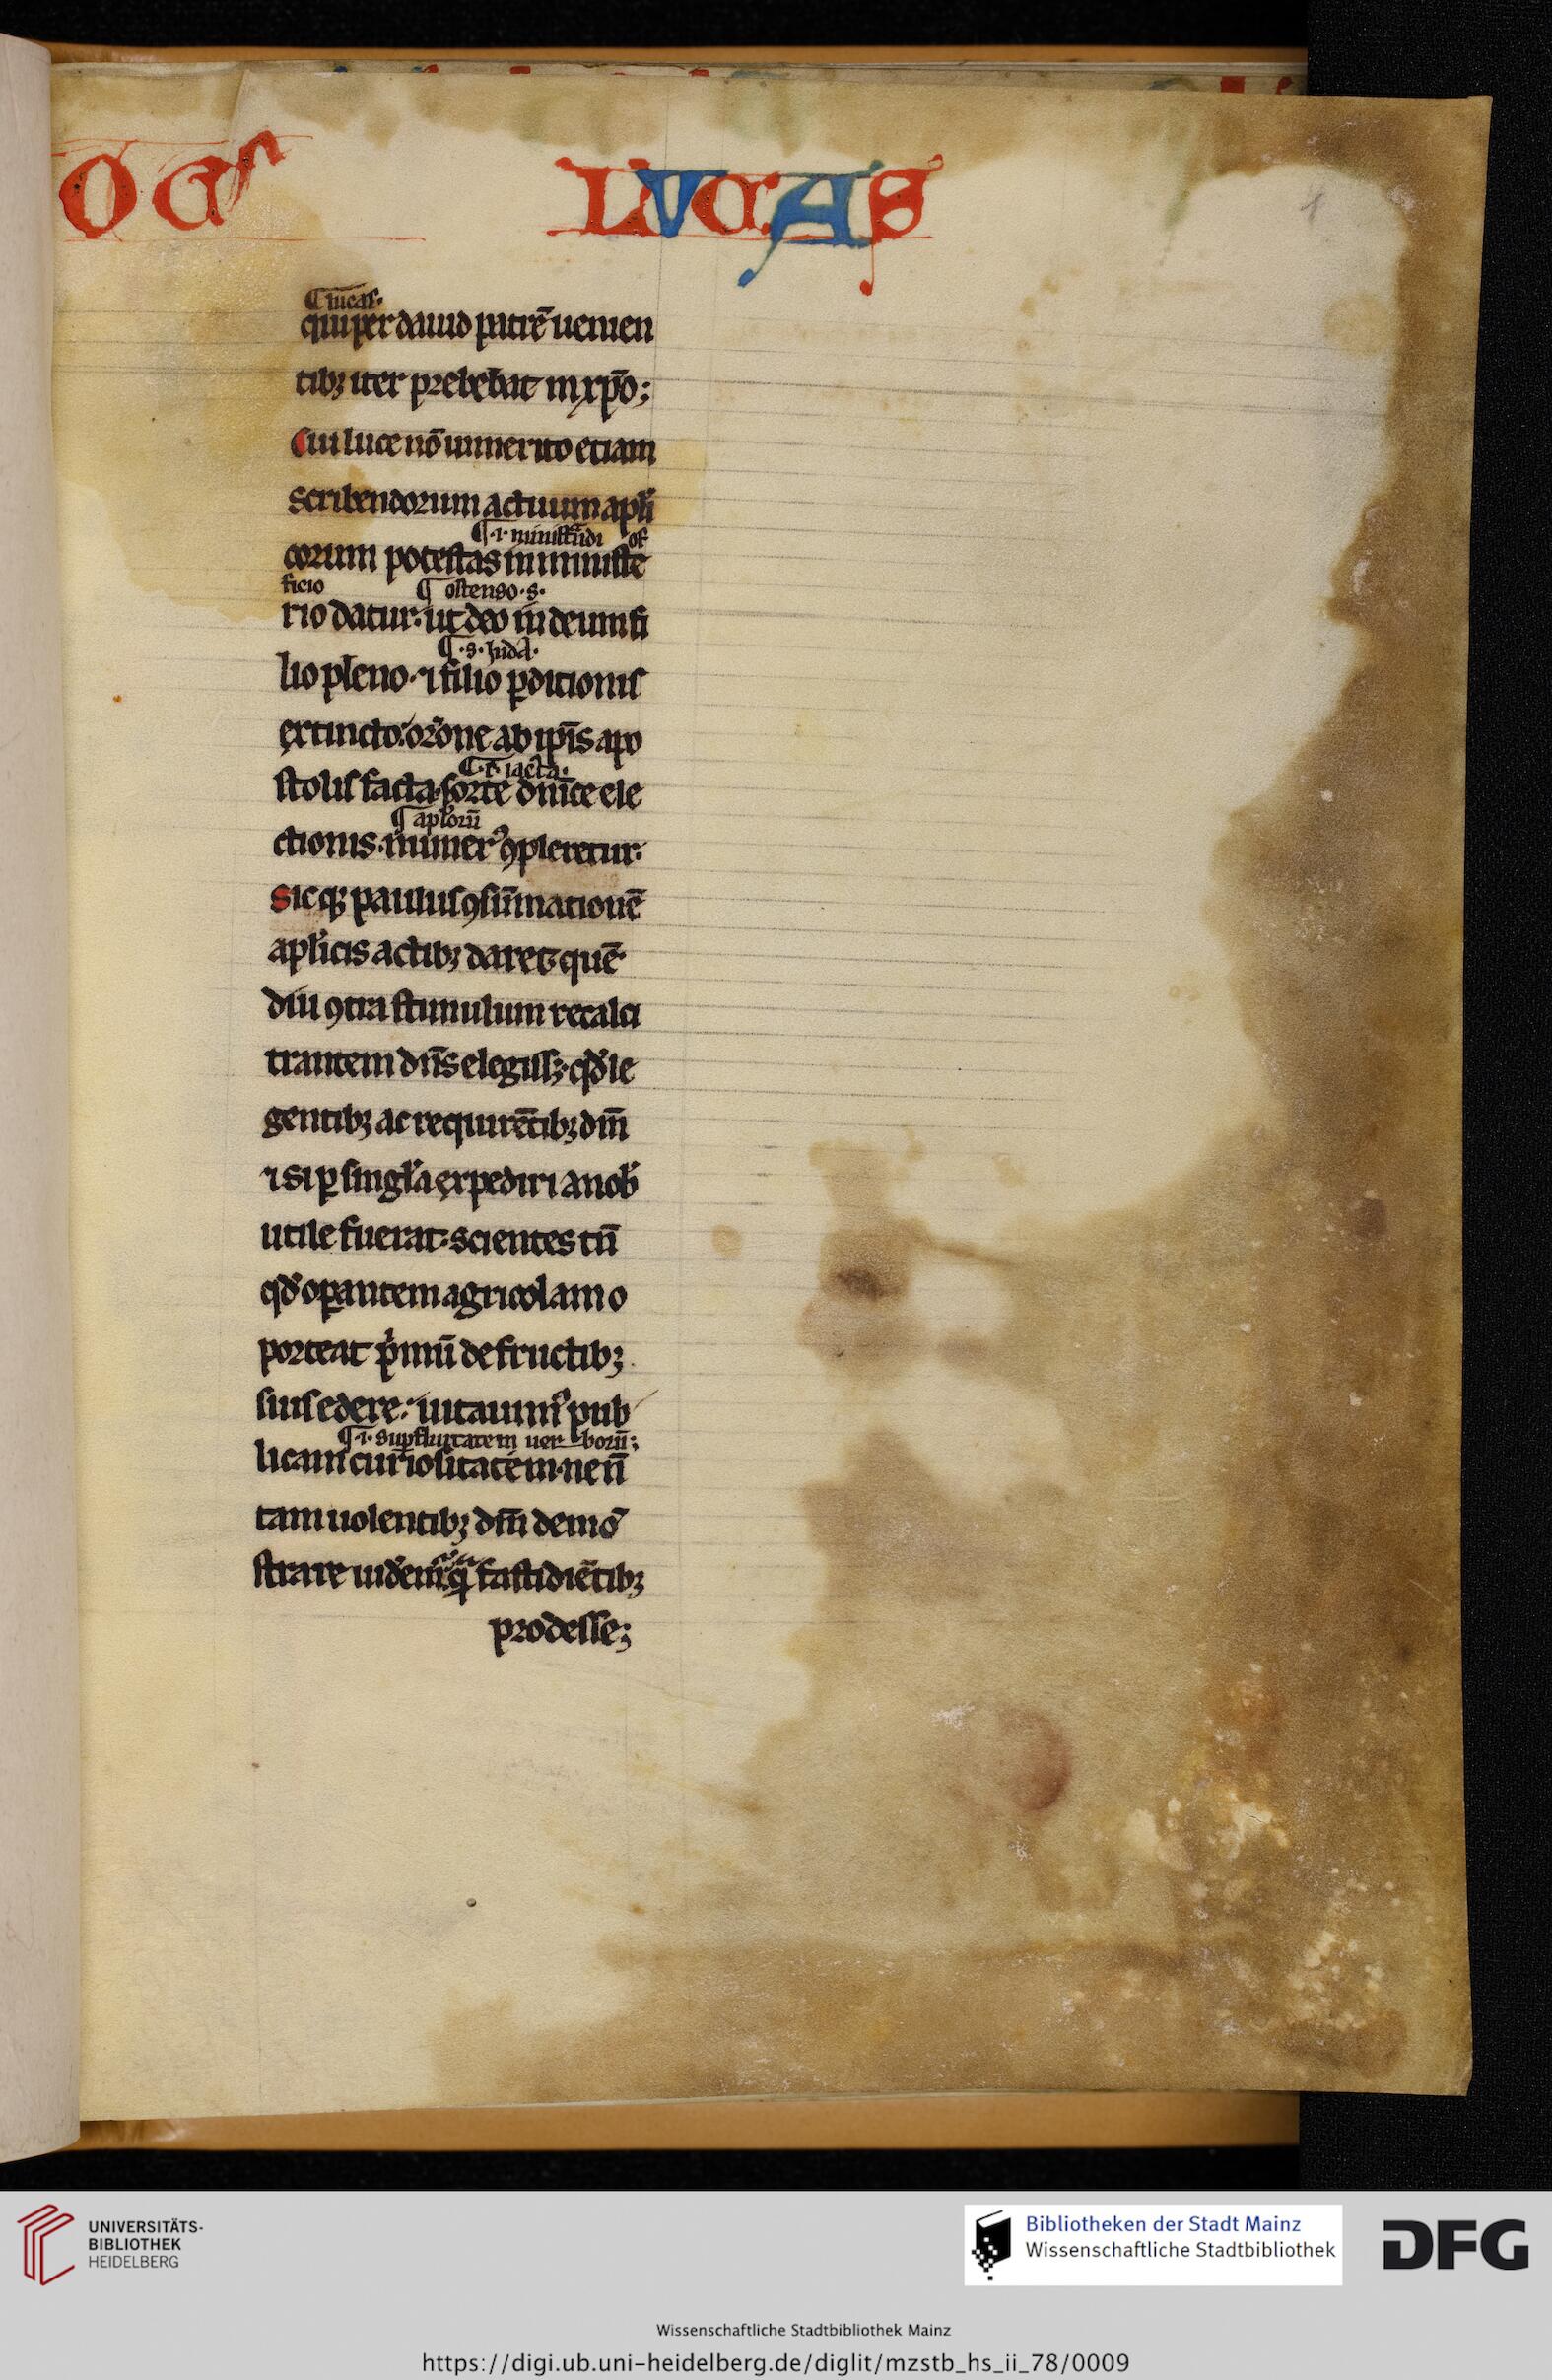 OGꝰ
LVCAS
1
¶ lucas·
qui per dauid patrē uenien
tibꝫ iter prebebat in xp̄o;
Cui luce nō immerito etiam
scribendorum actuum apl̓i
¶ ·i· ministrādi of
corum potestas in ministe
ficio
¶ ostenso ·s·
rio datur: ut deo in deum fi
¶ ·s· iuda·
lio pleno· ⁊ filio ꝑditionis
extincto: or̄one ab ip̄is apo
¶ ·i· iacta·
stolis facta· sorte dn̄ice ele
¶ apl̓orū
ctionis· numerꝰ ꝯpleretur·
Sicqꝫ paulus ꝯsūmationē
apl̓icis actibꝫ daret· quē
diu ꝯtra stimulum recalci
trantem dn̄s elegissꝫ· qd̓ le
gentibꝫ ac requirētibꝫ dm̄
⁊ si ꝑ singl̓a expediri a nob̓
utile fuerat: scientes tn̄
qd̓ oꝑantem agricolam o
porteat p̓mū de fructibꝫ
suis edere: uitauimꝰ pub
¶ ·i· suꝑfluitatem uerborū;
licam curiositatem· ne n̄
tam uolentibꝫ dm̄ demō
strare uidem̃· q̃ fastidiētibꝫ
prodesse;
UNIVERSITÄTS-
BIBLIOTHEK
HEIDELBERG
Bibliotheken der Stadt Mainz
Wissenschaftliche Stadtbibliothek
DFG
Wissenschaftliche Stadtbibliothek Mainz
https://digi.ub.uni-heidelberg.de/diglit/mzstb_hs_ii_78/0009